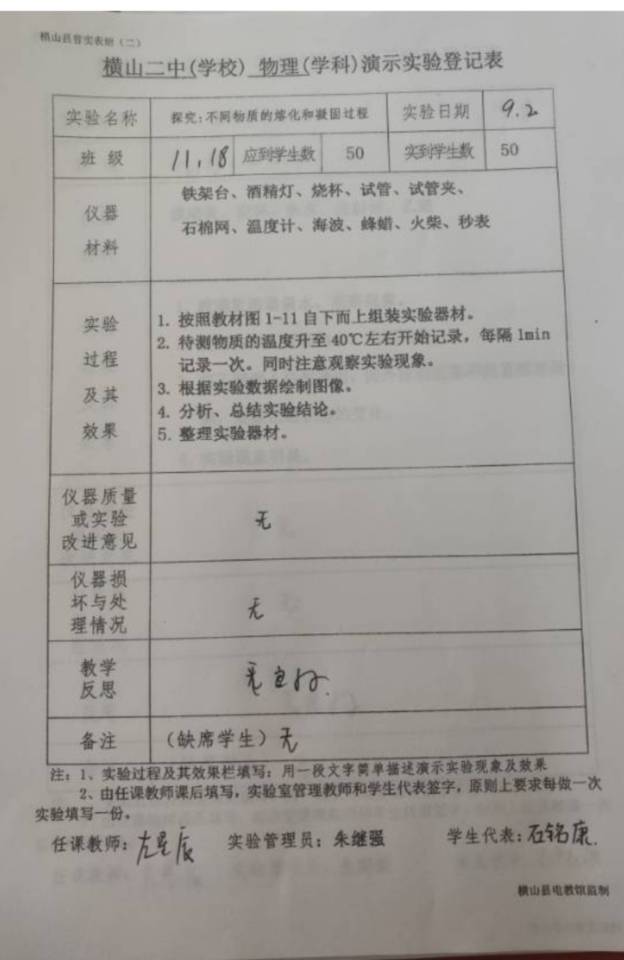 横山县普实表册（二）
横山二中(学校) 物理(学科)演示实验登记表
实验名称 探究:不同物质的熔化和凝固过程 实验日期 9.2
班 级 11,18 应到学生数 50 实到学生数 50
仪器
材料
铁架台、酒精灯、烧杯、试管、试管夹、
石棉网、温度计、海波、蜂蜡、火柴、秒表
实验
过程
及其
效果
1. 按照教材图 1-11 自下而上组装实验器材。
2. 待测物质的温度升至 40℃左右开始记录，每隔 1min
记录一次。同时注意观察实验现象。
3. 根据实验数据绘制图像。
4. 分析、总结实验结论。
5. 整理实验器材。
仪器质量
或实验
改进意见
无
仪器损
坏与处
理情况
无
教学
反思
备注 （缺席学生）无
注：1、实验过程及其效果栏填写：用一段文字简单描述演示实验现象及效果
2、由任课教师课后填写，实验室管理教师和学生代表签字，原则上要求每做一次
实验填写一份。
任课教师: 左星辰 实验管理员：朱继强 学生代表: 石铭康
横山县电教馆监制